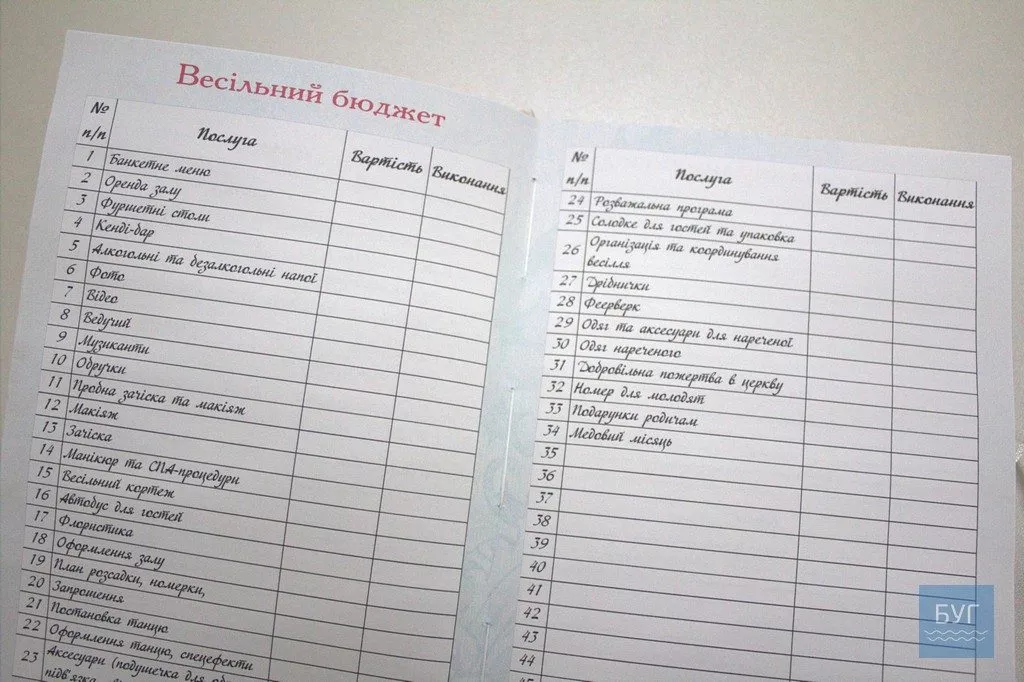 Весільний бюджет
№ п/п Послуга Вартість Виконання
1 Банкетне меню
2 Оренда залу
3 Фуршетні столи
4 Кенді-бар
5 Алкогольні та безалкогольні напої
6 Фото
7 Відео
8 Ведучий
9 Музиканти
10 Обручки
11 Пробна зачіска та макіяж
12 Макіяж
13 Зачіска
14 Манікюр та СПА-процедури
15 Весільний кортеж
16 Автобус для гостей
17 Флористика
18 Оформлення залу
19 План розсадки, номерки,
20 Запрошення
21 Постановка танцю
22 Оформлення танцю, спецефекти
23 Аксесуари (подушечка для
підв'язка,
№ п/п Послуга Вартість Виконання
24 Розважальна програма
25 Солодке для гостей та упаковка
26 Організація та координування
весілля
27 Дрібнички
28 Феєрверк
29 Одяг та аксесуари для нареченої
30 Одяг нареченого
31 Добровільна пожертва в церкву
32 Номер для молодят
33 Подарунки родичам
34 Медовий місяць
35
36
37
38
39
40
41
42
43
44
БУГ